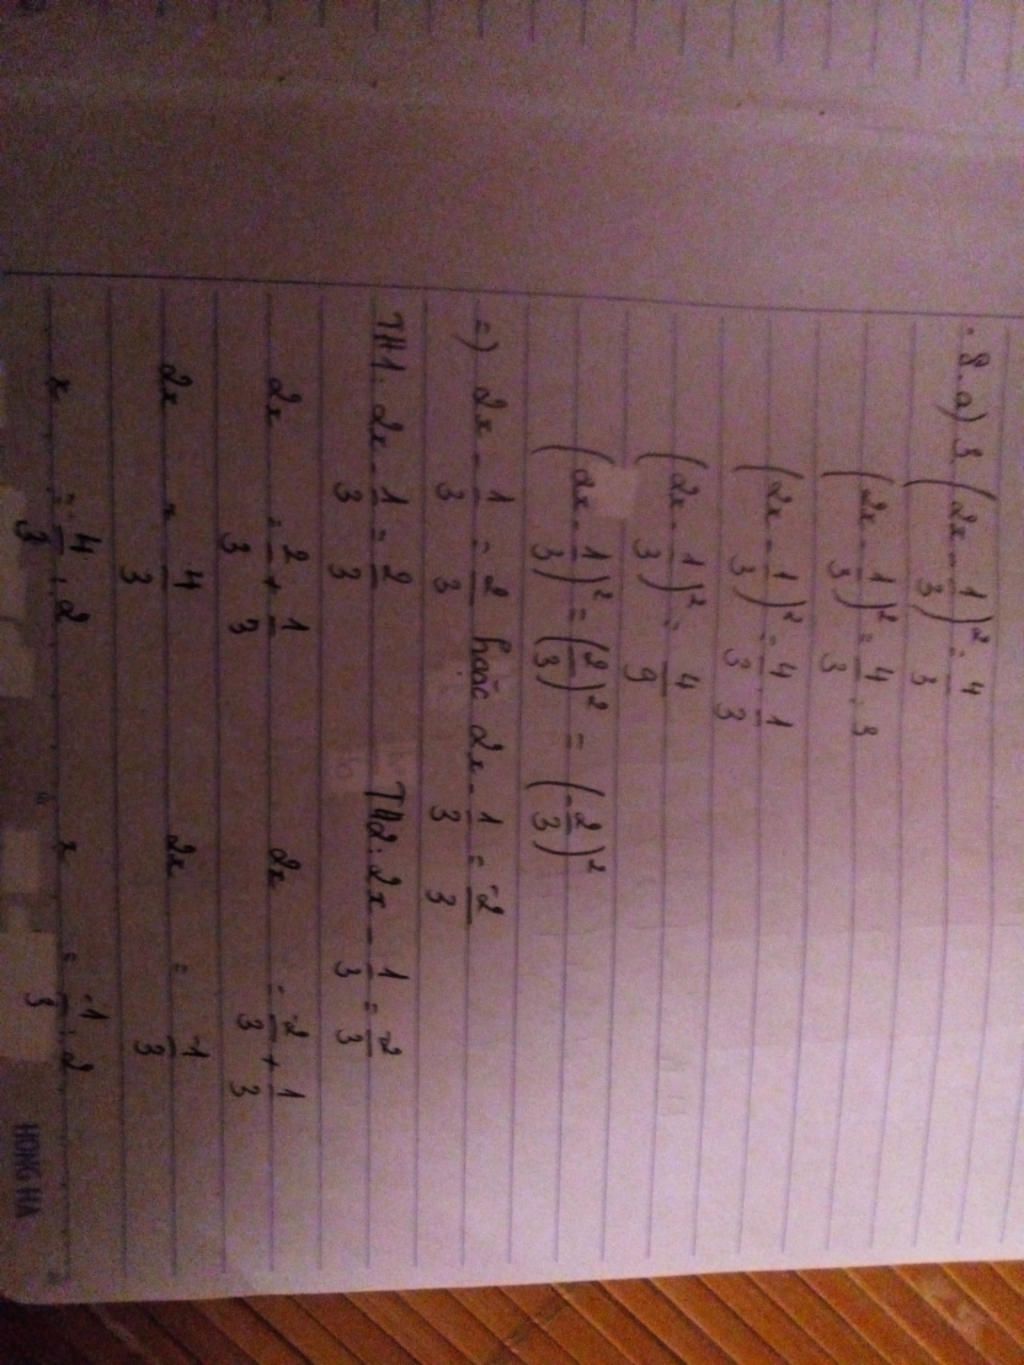 8. a) 3 (2x - 1/3)² = 4/3
(2x - 1/3)² = 4/3 : 3
(2x - 1/3)² = 4/3 . 1/3
(2x - 1/3)² = 4/9
(2x - 1/3)² = (2/3)² = (-2/3)²
=) 2x - 1/3 = 2/3 hoặc 2x - 1/3 = -2/3
TH1. 2x - 1/3 = 2/3 TH2: 2x - 1/3 = -2/3
2x = 2/3 + 1/3 2x = -2/3 + 1/3
2x = 4/3 2x = -1/3
x = 4/3 : 2 x = -1/3 : 2
HONG HA